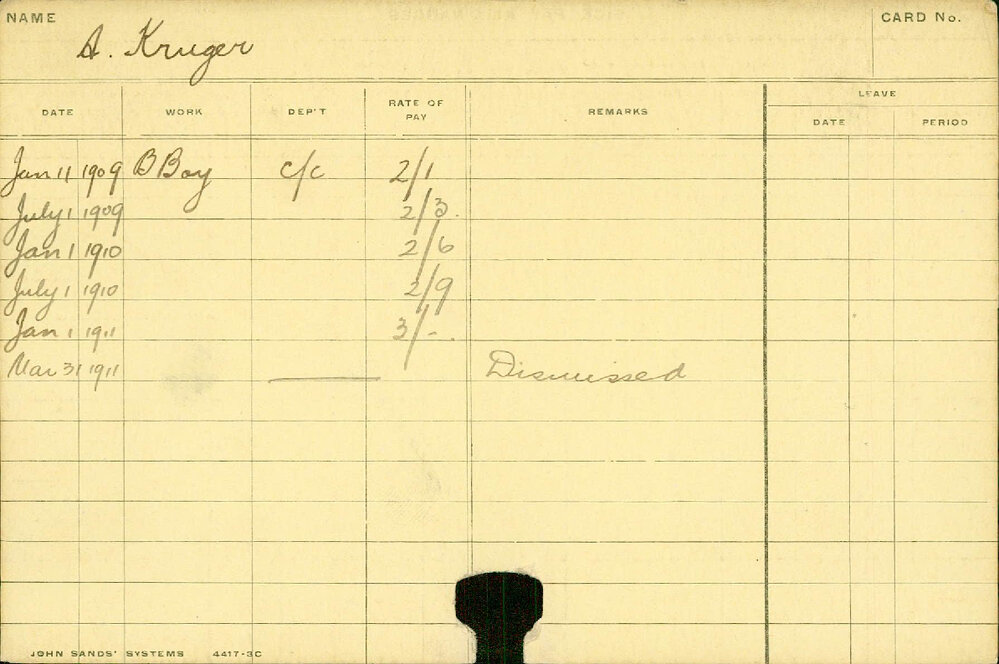 NAME
CARD No.
A. Kruger
LEAVE
DATE WORK DEP'T RATE OF PAY REMARKS DATE PERIOD
Jan 11 1909 B Boy c/c 2/1
July 1 1909 2/3.
Jan 1 1910 2/6
July 1 1910 2/9
Jan 1 1911 3/-.
Mar 31 1911 Dismissed
JOHN SANDS' SYSTEMS 4417-3C